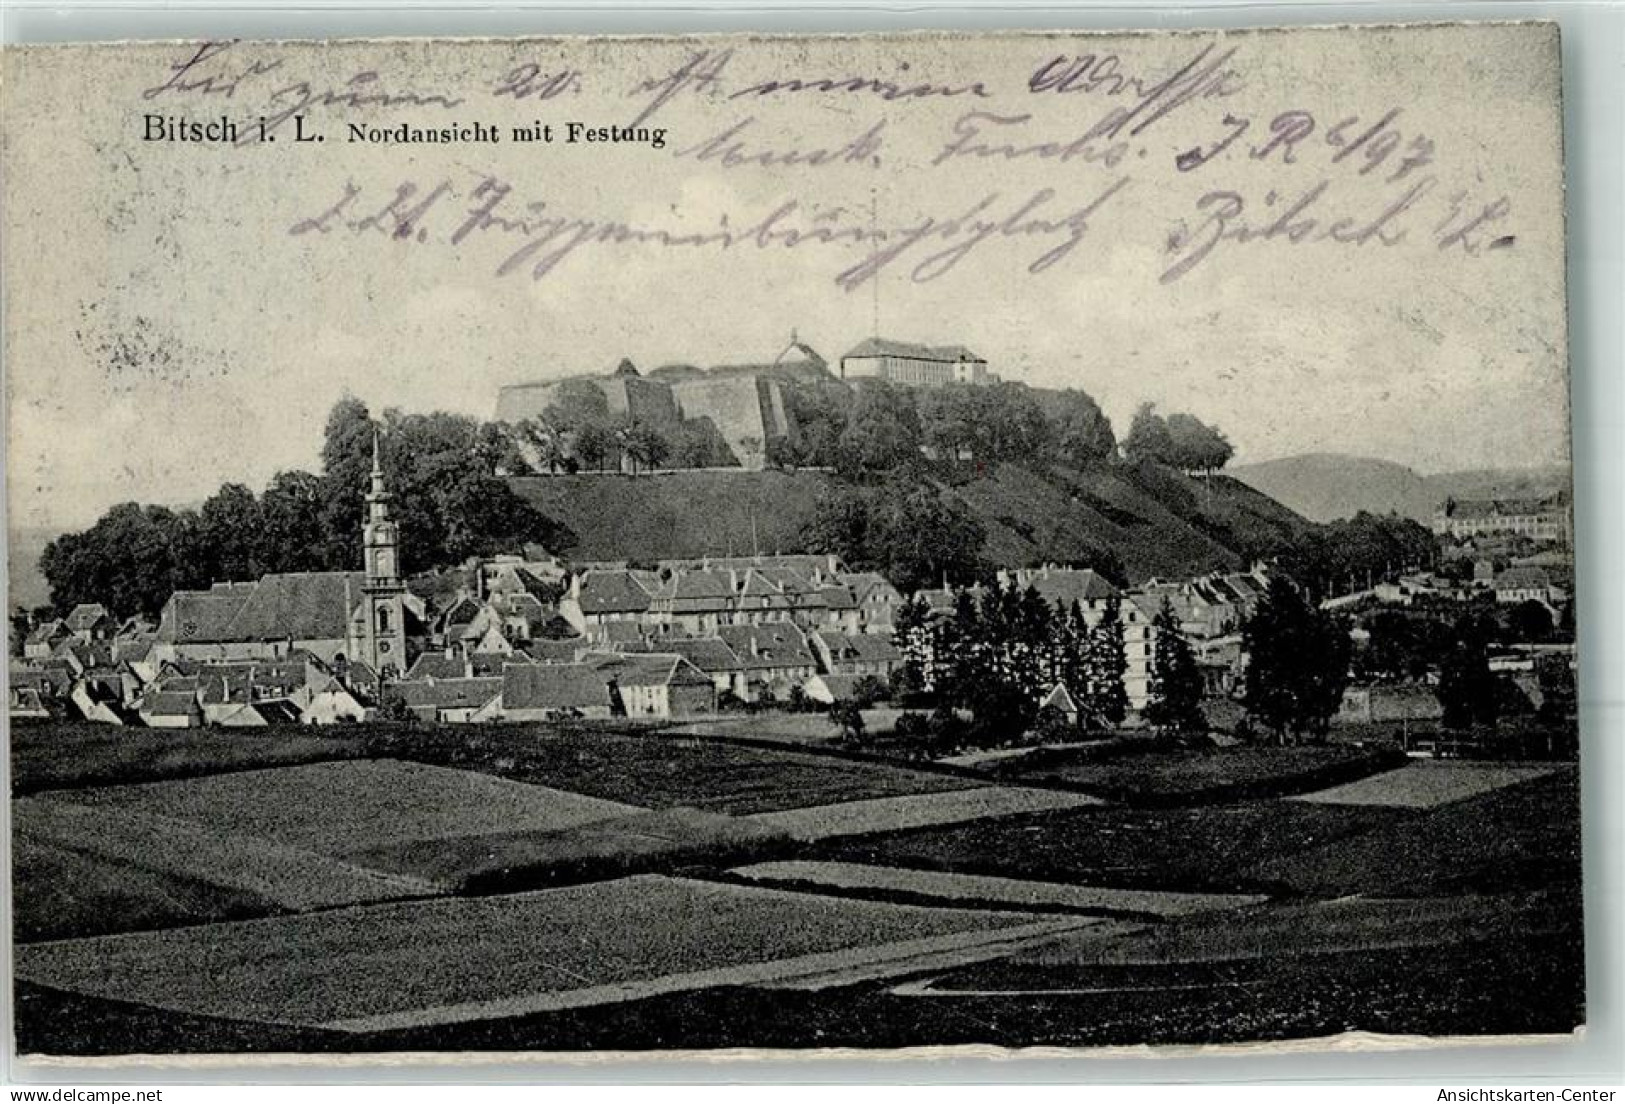 Bis zum 20. ist meine Adresse
Bitsch i. L. Nordansicht mit Festung
Musk. Fuchs. J. R 6/97
z. Zt. Truppenübungsplatz Bitsch i/L.
Ansichtskarten-Center
www.delcampe.net